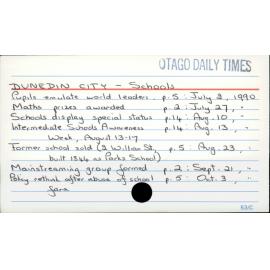 OTAGO DAILY TIMES
DUNEDIN CITY - Schools
Pupils emulate world leaders p.5 : July 2, 1990
Maths prizes awarded p.2 : July 27, "
Schools display special status p.14 : Aug. 10, "
Intermediate Schools Awareness p.14 : Aug. 13, "
Week, August 13-17
Former school sold (2 William St, p.5 : Aug. 23, "
built 1344 as Parks School)
Mainstreaming group formed p.2 : Sept. 21, "
Policy rethink after abuse of school p.5 : Oct. 3, "